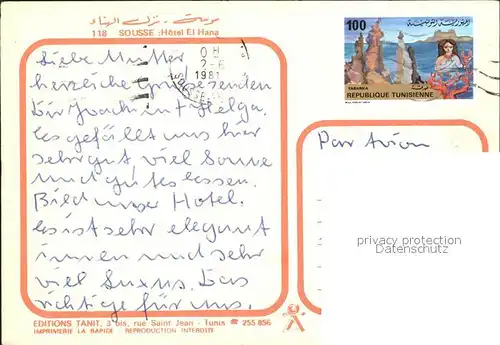 سوسة - نزل الهناء
118 SOUSSE : Hôtel El Hana
Liebe
herzliche Grüße senden
Dir Joachim + Helga.
Es gefällt uns hier
sehr gut viel Sonne
und gutes Essen.
Bild unser Hotel.
Es ist sehr elegant
innen und sehr
viel Luxus. Das
richtige für uns.
EDITIONS TANIT, 3 bis, rue Saint Jean - Tunis ☎ 255 856
IMPRIMERIE LA RAPIDE REPRODUCTION INTERDITE
1981
100
الجمهورية التونسية
TABARKA
REPUBLIQUE TUNISIENNE
Par Avion
privacy protection
Datenschutz